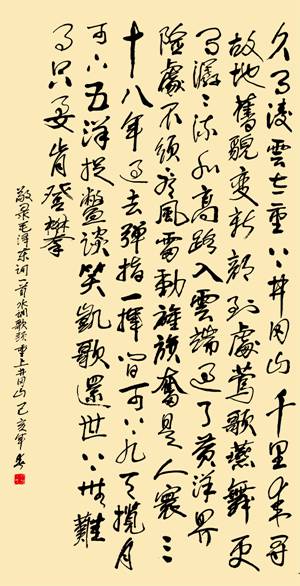 久有凌雲志重上井冈山千里来寻
故地舊貌變新颜到處莺歌燕舞更
有潺〻流水高路入雲端过了黄洋界
險處不須看風雷動旌旗奮是人寰三
十八年过去彈指一揮间可上九天攬月
可下五洋捉鱉談笑凱歌還世上無難
事只要肯登攀
敬录毛泽东词一首水调歌头重上井冈山己亥年